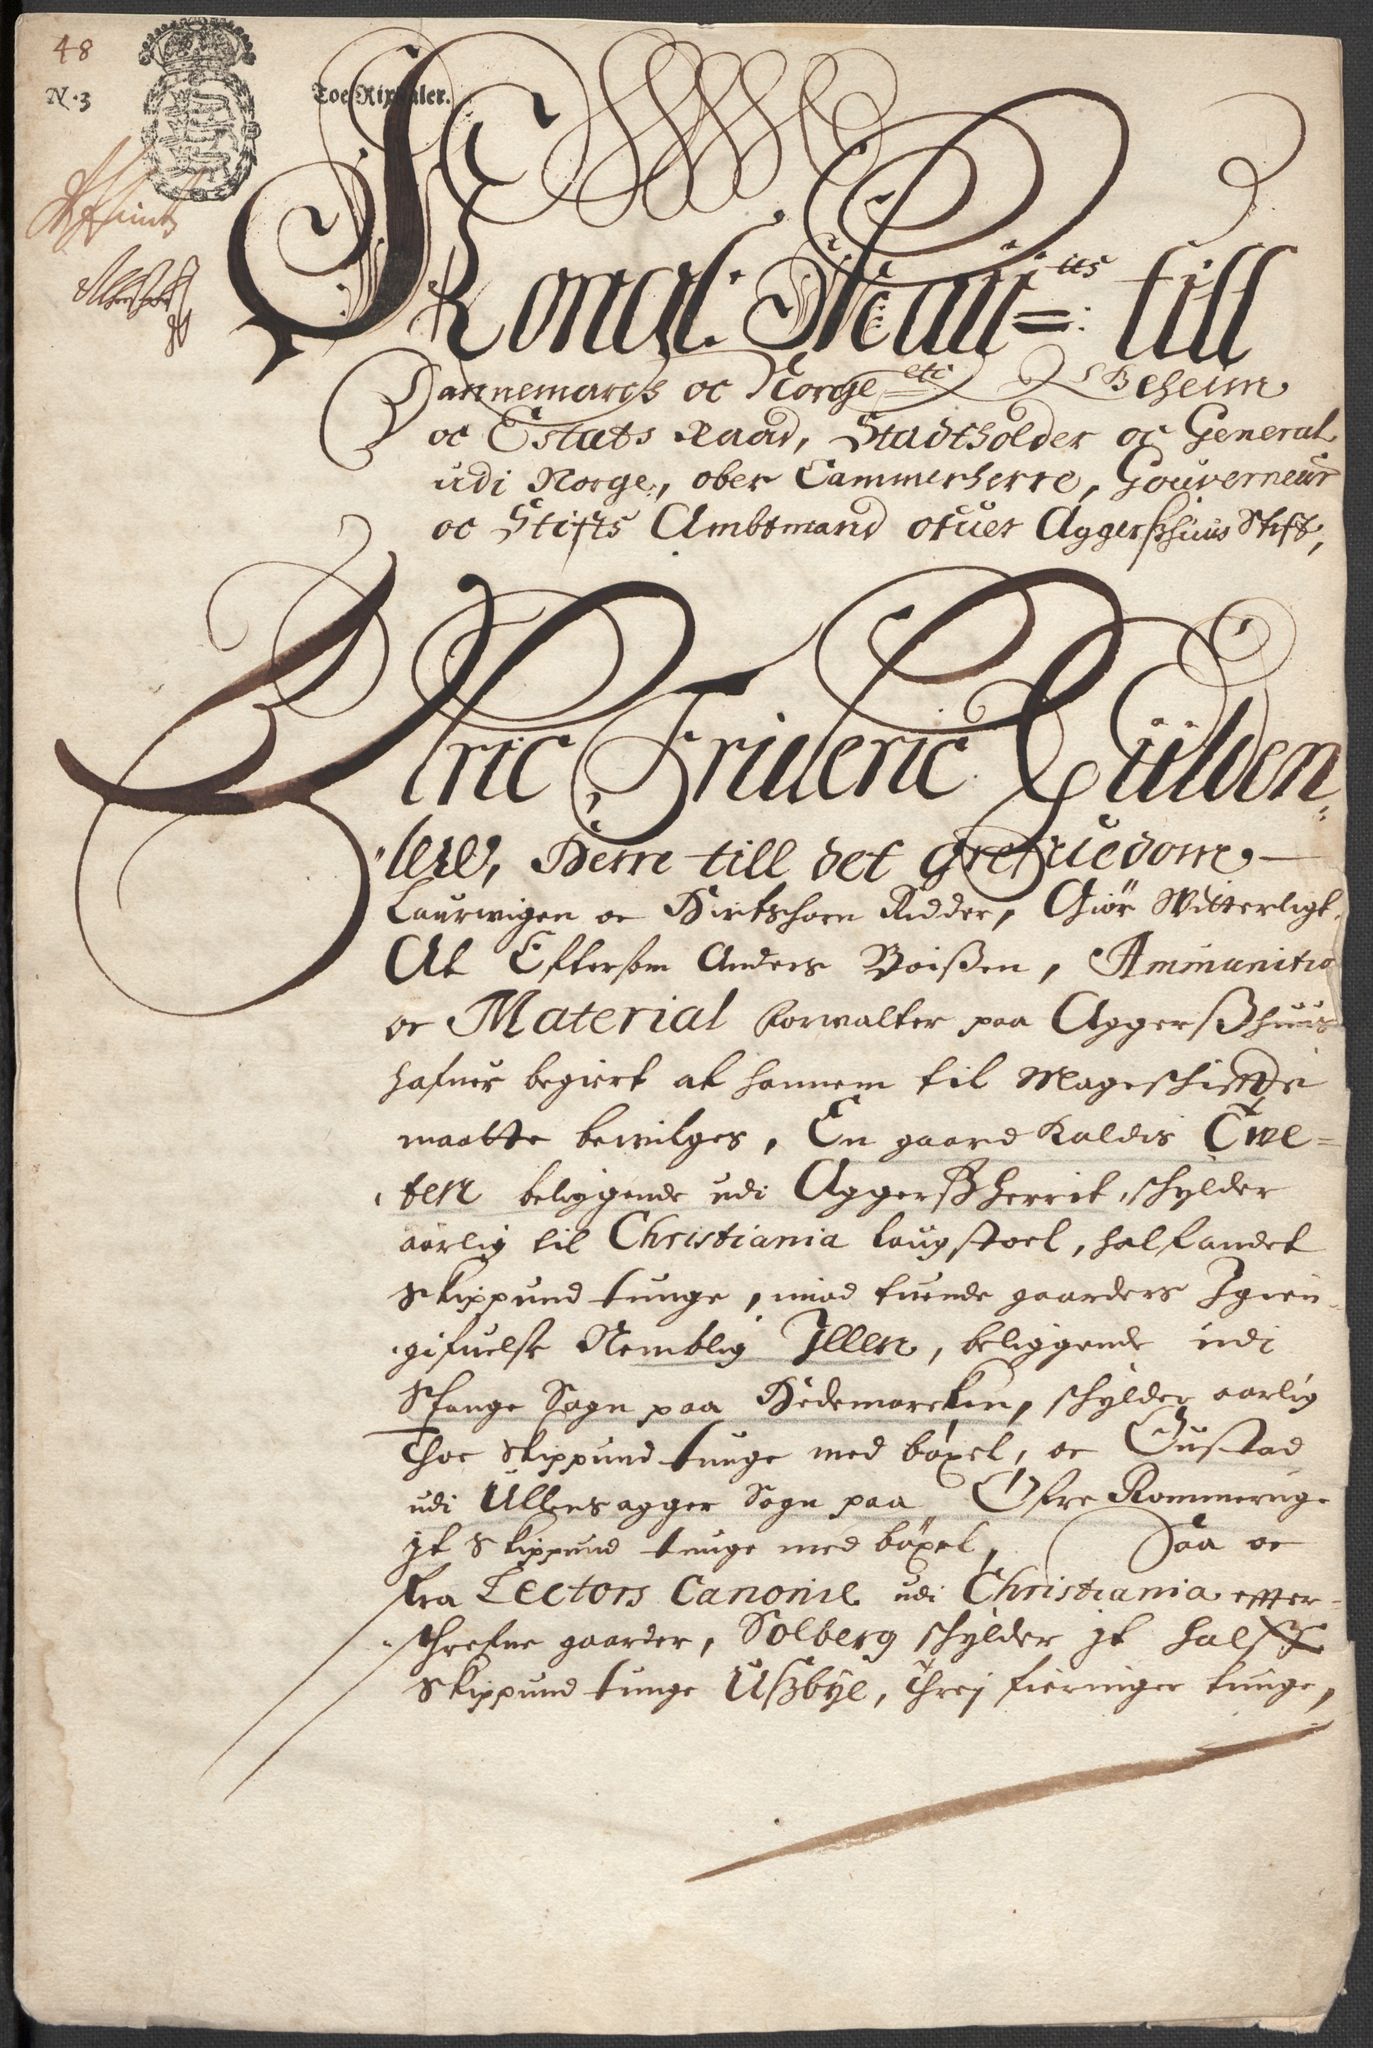 48
N. 3
Toe Rixdaler.
Kongl. Maÿ=tts: till
Dannemarck oc Norge etc Geheim
oc Estats Raad, Stadtholder oc General
udi Norge, ober Cammerherre, Gouverneur
oc Stifts Ambtmand ofuer Aggerßhuus Stift,
Ulric Frideric Gülden-
lewe, Herre till det grefuedom
Laurwigen oc Hirtshorn Ridder, Giör Witterligt,
At Eftersom Anders Boißen, Ammunitio
oc Material forwalter paa Aggerßhuus
hafuer begiert at hannem til Mageschifte
maatte bewilges, En gaard kaldis Twe=
ten beliggende udi Aggerßherrit, schylder
aarlig til Christiania laugstoel, halfandet
Skippund tunge, imod tuende gaarders Igien-
gifuelse Nemblig Illen, beliggende udi
Stange Sogn paa Hedemarcken, schylder aarlig
Thoe Skippund tunge med böxel, oc Gustad
udi Ullensagger Sogn paa Öfre Rommerige
jt Skippund tunge med böxel, Saa oc
fra Lectors Canonie udi Christiania effter-
schrefne gaarder, Solberg schylder jt halft
Skippund tunge Ußbÿe, Threj fieringer tunge,